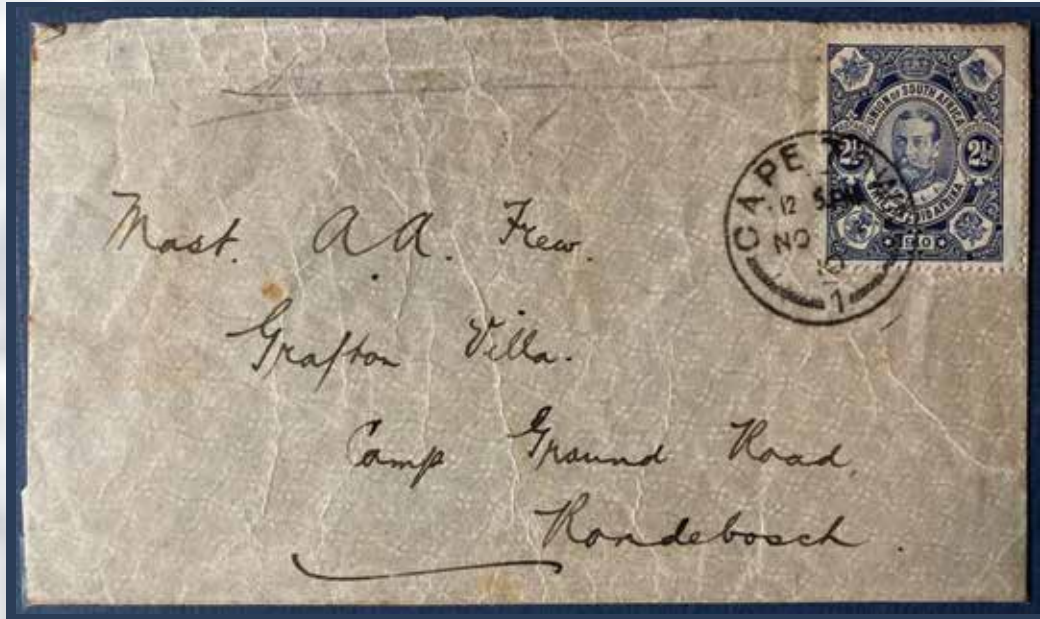 UNION OF SOUTH AFRICA
2½ 2½
ZUID AFRIKA
1910
CAPE TOWN
12 5.PM
NO
10
1
Mast. A.A. Frew.
Grafton Villa.
Camp Ground Road,
Rondebosch.